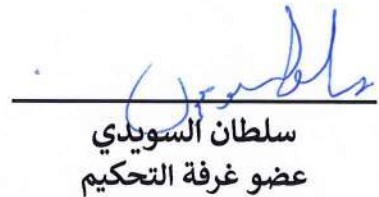 سلطان السويدي
عضو غرفة التحكيم